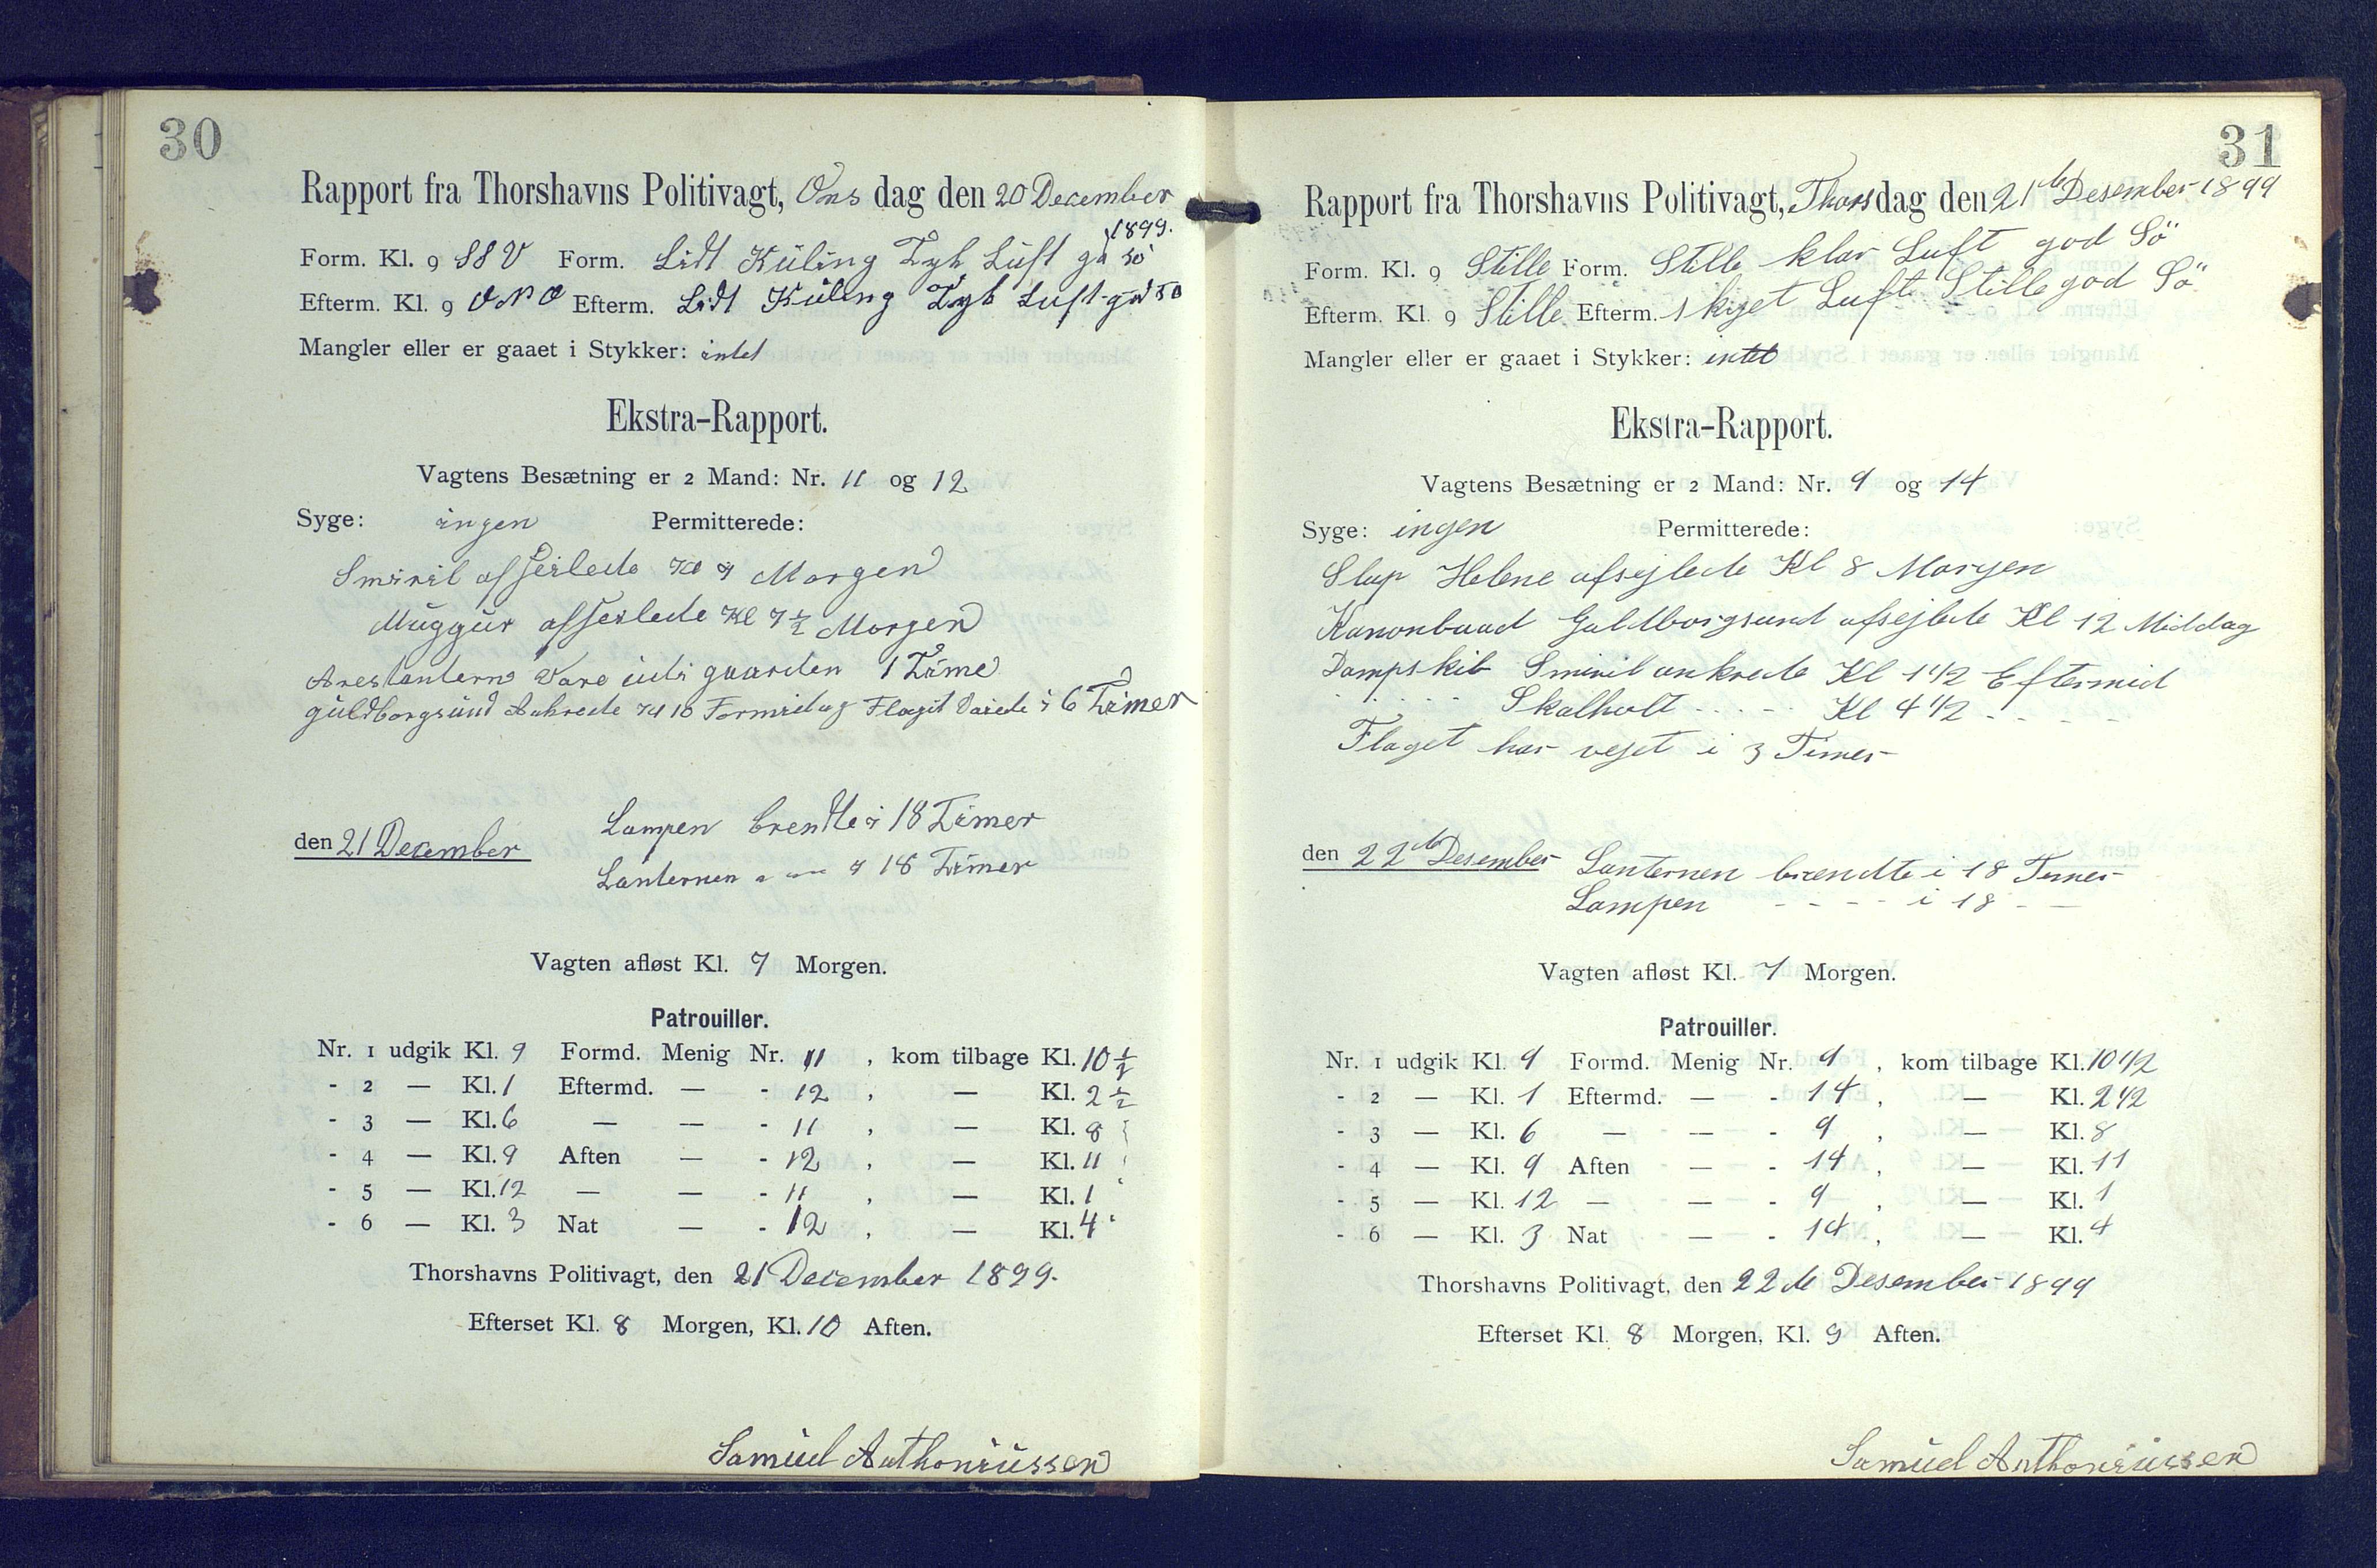 30
Rapport fra Thorshavns Politivagt, Ons dag den 20 December
1899.
Form. Kl. 9 SSV Form. Lidt Küling Tyk Lüft gd sö
Efterm. Kl. 9 ONO Efterm. Lidt Küling Tyk Luft god so
Mangler eller er gaaet i Stykker: intet
Ekstra-Rapport.
Vagtens Besætning er 2 Mand: Nr. 11 og 12
Syge: ingen Permitterede:
Smiril afseilede Kl 7 Morgen
Müggür afseilede Kl 7½ Morgen
Arestantern Vare üdi gaarden 1 Time
güldborgsünd Ankrede Kl 10 Formidag Flagit Vaiede i 6 Timer
den 21 December Lampen brendte i 18 Timer
Lanternen i 18 Timer
Vagten afløst Kl. 7 Morgen.
Patrouiller.
Nr. 1 udgik Kl. 9 Formd. Menig Nr. 11, kom tilbage Kl. 10½
- 2 — Kl. 1 Eftermd. — - 12, — Kl. 2½
- 3 — Kl. 6 — — - 11, — Kl. 8
- 4 — Kl. 9 Aften — - 12, — Kl. 11
- 5 — Kl. 12 — — - 11, — Kl. 1
- 6 — Kl. 3 Nat — - 12, — Kl. 4
Thorshavns Politivagt, den 21 December 1899.
Efterset Kl. 8 Morgen, Kl. 10 Aften.
Samüel Anthoniüssen
31
Rapport fra Thorshavns Politivagt, Thorsdag den 21de Desember 1899
Form. Kl. 9 Stille Form. Stille klar Luft god Sö
Efterm. Kl. 9 Stille Efterm. skyet Luft Stille god Sö
Mangler eller er gaaet i Stykker: intet
Ekstra-Rapport.
Vagtens Besætning er 2 Mand: Nr. 9 og 14
Syge: ingen Permitterede:
Slup Helene afsejlede Kl 8 Morgen
Kanonbaad Guldborgsund afsejlede Kl 12 Middag
Dampskib Smiril ankrede Kl 1 1/2 Eftermid
- - - - Skalholt - - - - Kl 4 1/2 - - - -
Flaget har vejet i 3 Timer
den 22de Desember Lanternen brændte i 18 Timer
Lampen - - - - i 18 - —
Vagten afløst Kl. 7 Morgen.
Patrouiller.
Nr. 1 udgik Kl. 9 Formd. Menig Nr. 9, kom tilbage Kl. 10 1/2
- 2 — Kl. 1 Eftermd. — - 14, — Kl. 2 1/2
- 3 — Kl. 6 — — - 9, — Kl. 8
- 4 — Kl. 9 Aften — - 14, — Kl. 11
- 5 — Kl. 12 — — - 9, — Kl. 1
- 6 — Kl. 3 Nat — - 14, — Kl. 4
Thorshavns Politivagt, den 22de Desember 1899
Efterset Kl. 8 Morgen, Kl. 9 Aften.
Samüel Anthoniüssen